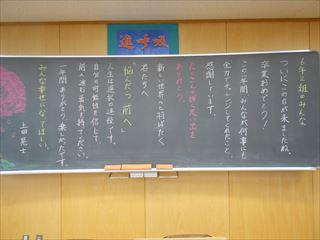 進呼吸
6年2組のみんな
ついにこの日が来ましたね。
卒業おめでとう!
この一年間 みんなが何事にも
全力でチャレンジしてくれたこと、
感謝しています。
たくさんの想い出を
ありがとう。
新しい世界へと羽ばたく
君たちへ
「悩んだら前へ」
人生は選択の連続です。
自分の可能性を信じて、
前へ進む勇気を持ってください。
一年間ありがとう。楽しかったです。
みんな幸せになってほしい。
上田晃士